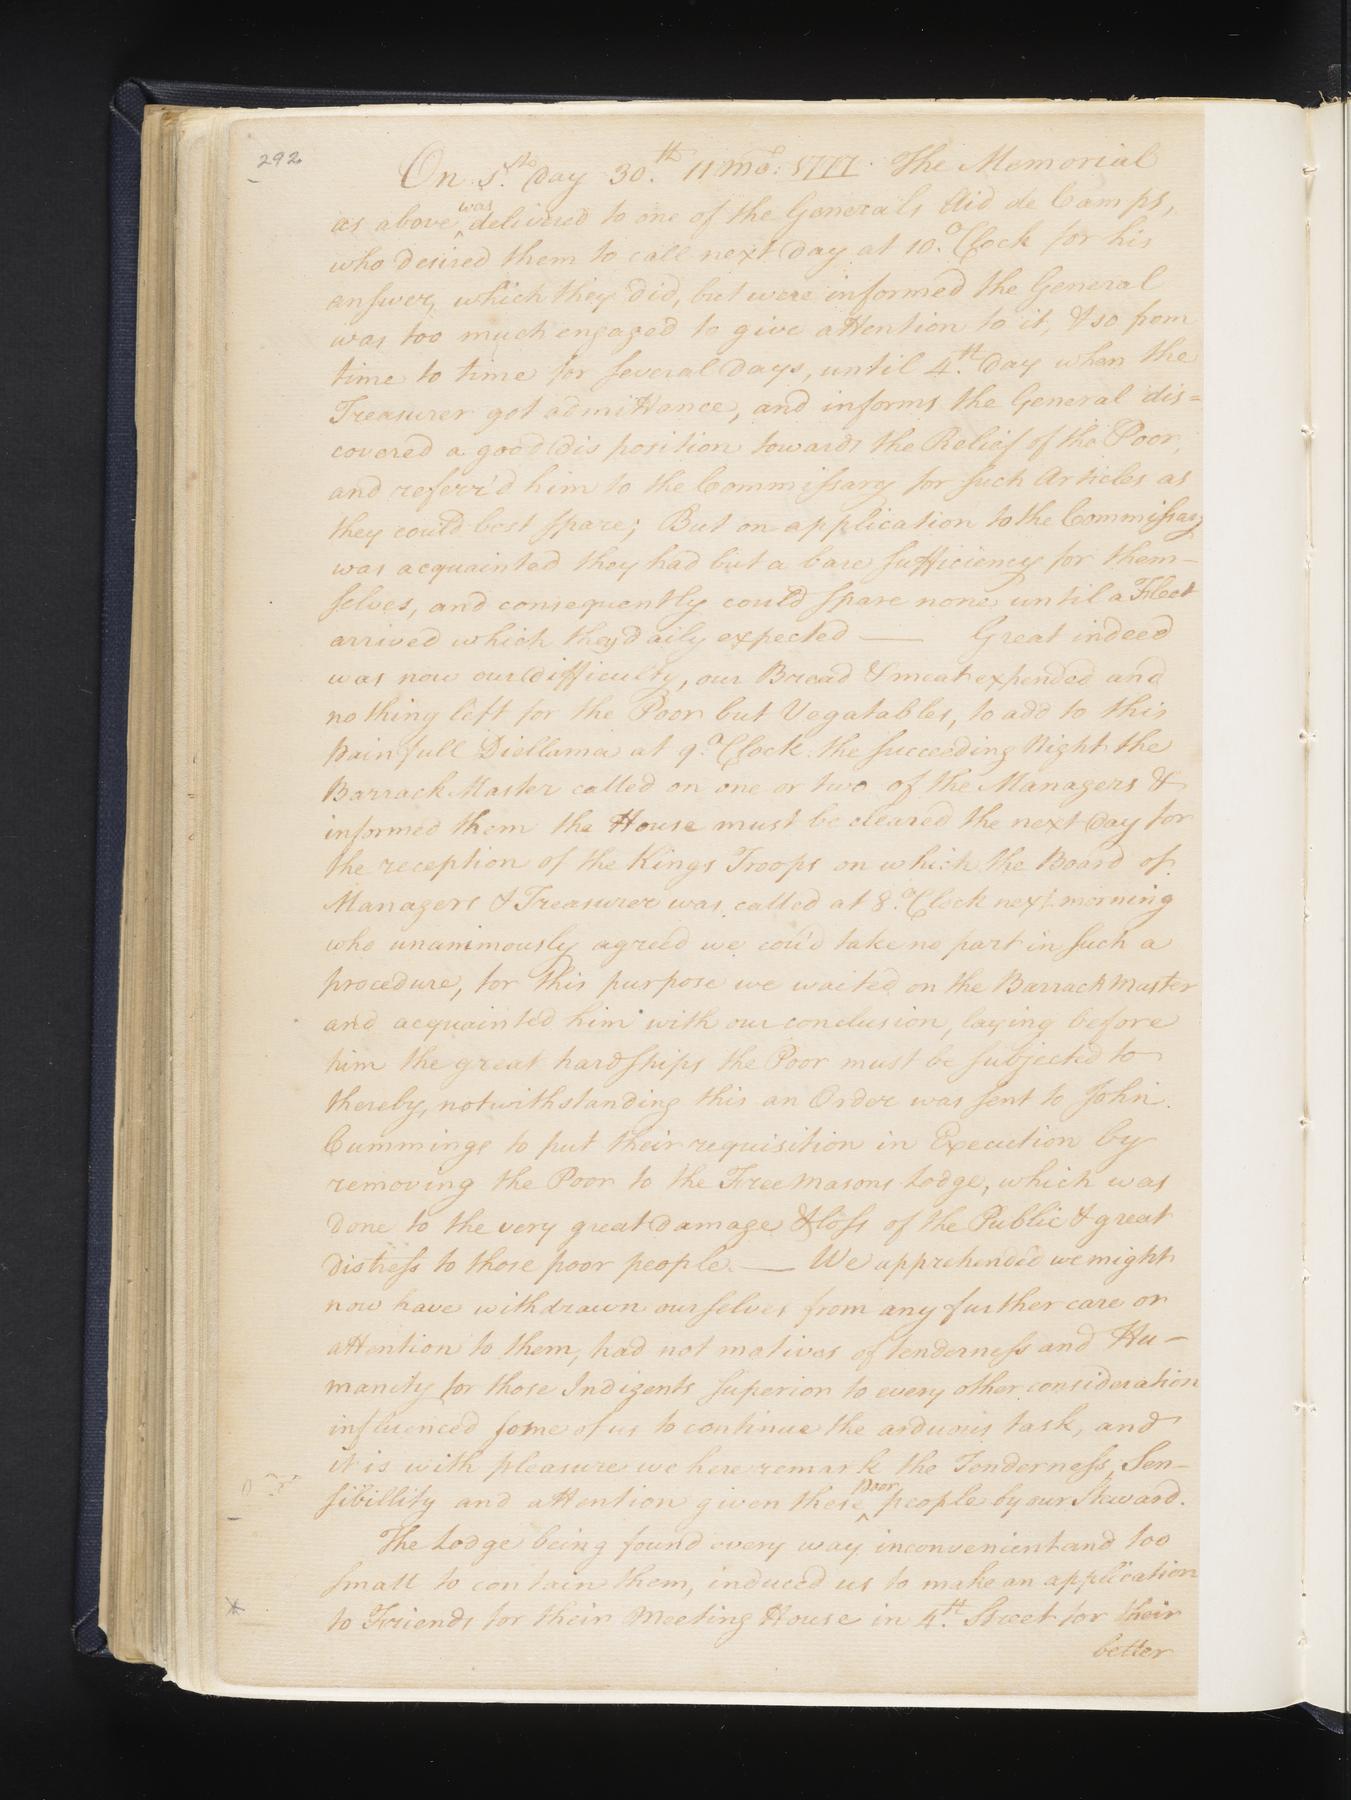 292
On 5.th Day 30.th 11 mo: 1777. The Memorial
as above was delivered to one of the Generals Aid de Camps,
who desired them to call next Day at 10. oClock for his
answer, which they did, but were informed the General
was too much engaged to give attention to it, & so from
time to time for several Days, until 4.th Day when the
Treasurer got admittance, and informs the General dis=
covered a good disposition towards the Relief of the Poor,
and referr'd him to the Commissary for such Articles as
they could best spare; But on application to the Commissary
was acquainted they had but a bare sufficiency for them-
selves, and consequently could spare none until a Fleet
arrived which they daily expected — Great indeed
was now our difficulty, our Bread & meat expended and
nothing left for the Poor but Vegatables, to add to this
painfull Diellama at 9. oClock the succeeding Night the
Barrack Master called on one or two of the Managers &
informed them the House must be cleared the next Day for
the reception of the Kings Troops on which the Board of
Managers & Treasurer was called at 8. oClock next morning
who unanimously agreed we cou'd take no part in such a
procedure, for this purpose we waited on the Barrack Master
and acquainted him with our conclusion, laying before
him the great hardships the Poor must be subjected to
thereby, notwithstanding this an Order was sent to John
Cummings to put their requisition in Execution by
removing the Poor to the Free Masons Lodge, which was
done to the very great damage & loss of the Public & great
distress to those poor people. — We apprehended we might
now have withdrawn ourselves from any further care or
attention to them, had not motives of tenderness and Hu-
manity for those Indigents superior to every other consideration
influenced some of us to continue the arduous task, and
it is with pleasure we here remark the Tenderness, Sen-
sibillity and attention given these poor people by our Steward.
The Lodge being found every way inconvenient and too
small to contain them, induced us to make an application
to Friends for their Meeting House in 4.th Street for their
better